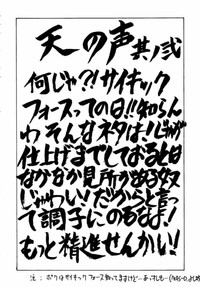 天の声其ノ弐
何じゃ?!サイキック
フォースっての日!!知らん
わそんなネタは!しかが
仕上げまでしておると日
なかなか見所がある奴
じゃわい!だからと言っ
て調子にのるなよ!
もっと精進せんかい!
注:ボクはサイキックフォース知ってますけど…